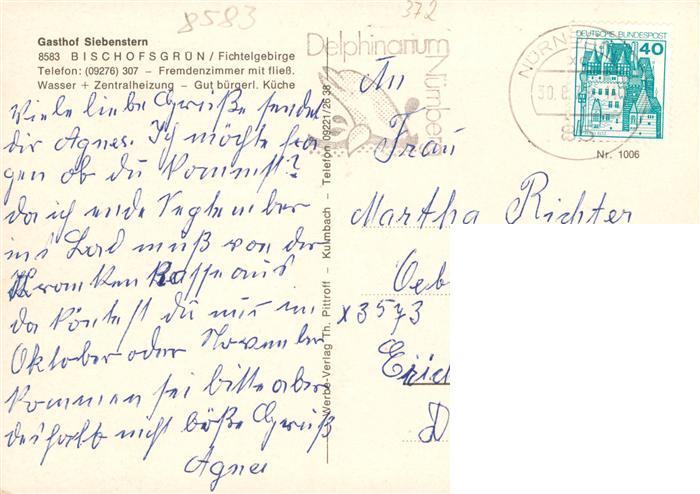 8583
372
Gasthof Siebenstern
8583 BISCHOFSGRÜN / Fichtelgebirge
Telefon: (09276) 307 – Fremdenzimmer mit fließ.
Wasser + Zentralheizung – Gut bürgerl. Küche
Viele liebe Grüße sendet
dir Agnes. Ich möchte fra
gen ob du kommst?
da ich ende September
ins Bad muß von der
Krankenkasse aus
da köntest du nur im
Oktober oder November
kommen sei bitte aber
deshalb nicht böße Gruß
Agnes
Werbe-Verlag Th. Pittroff – Kulmbach – Telefon 09221/2638
Delphinarium
Nürnbe
NÜRN
30.8.
85
DEUTSCHE BUNDESPOST
40
Nr. 1006
An
Frau
Martha Richter
Oeb
x 3573
Erich
D